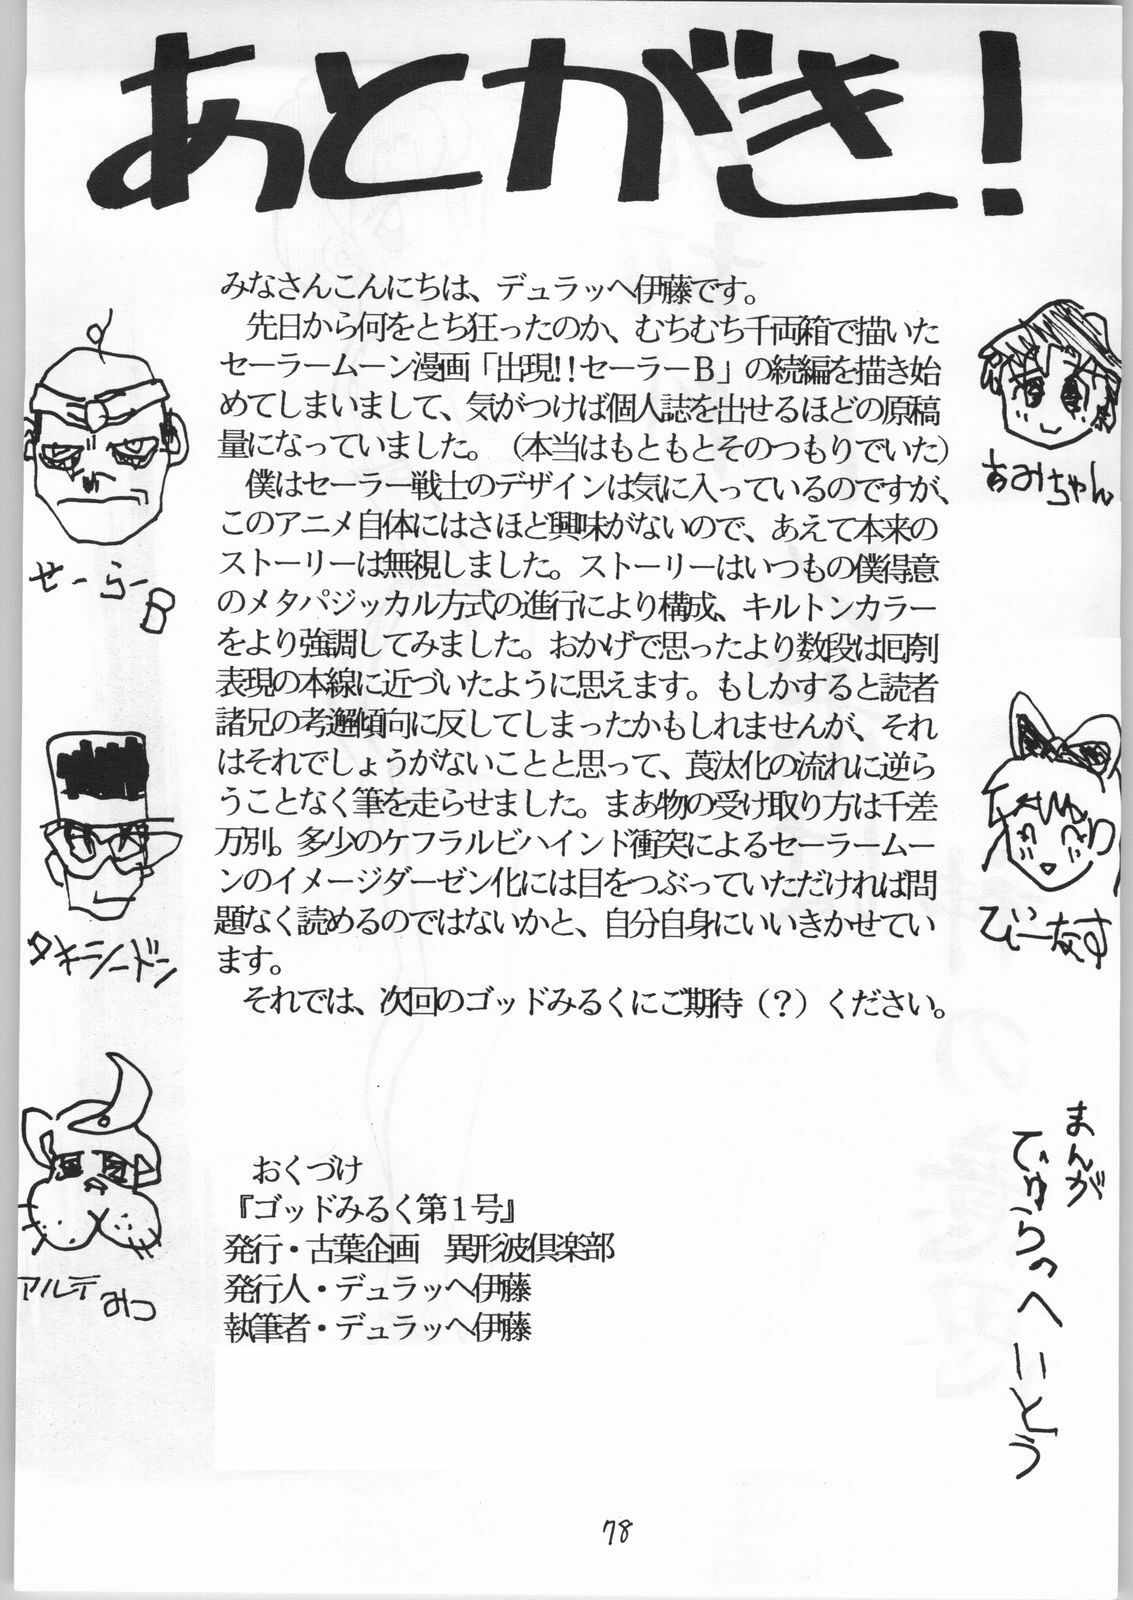 あとがき!
みなさんこんにちは、デュラッヘ伊藤です。
先日から何をとち狂ったのか、むちむち千両箱で描いた
セーラームーン漫画「出現!!セーラーB」の続編を描き始
めてしまいまして、気がつけば個人誌を出せるほどの原稿
量になっていました。(本当はもともとそのつもりでいた)
僕はセーラー戦士のデザインは気に入っているのですが、
このアニメ自体にはさほど興味がないので、あえて本来の
ストーリーは無視しました。ストーリーはいつもの僕得意
のメタパジッカル方式の進行により構成、キルトンカラー
をより強調してみました。おかげで思ったより数段は厄剺
表現の本線に近づいたように思えます。もしかすると読者
諸兄の考邂傾向に反してしまったかもしれませんが、それ
はそれでしょうがないことと思って、莨汰化の流れに逆ら
うことなく筆を走らせました。まあ物の受け取り方は千差
万別。多少のケフラルビハインド衝突によるセーラームー
ンのイメージダーゼン化には目をつぶっていただければ問
題なく読めるのではないかと、自分自身にいいきかせてい
ます。
それでは、次回のゴッドみるくにご期待(?)ください。
せーらーB
タキシードン
アルテみつ
あみちゃん
びーなす
まんが
でゅらっへいとう
おくづけ
『ゴッドみるく第1号』
発行・古葉企画 異形波倶楽部
発行人・デュラッヘ伊藤
執筆者・デュラッヘ伊藤
78